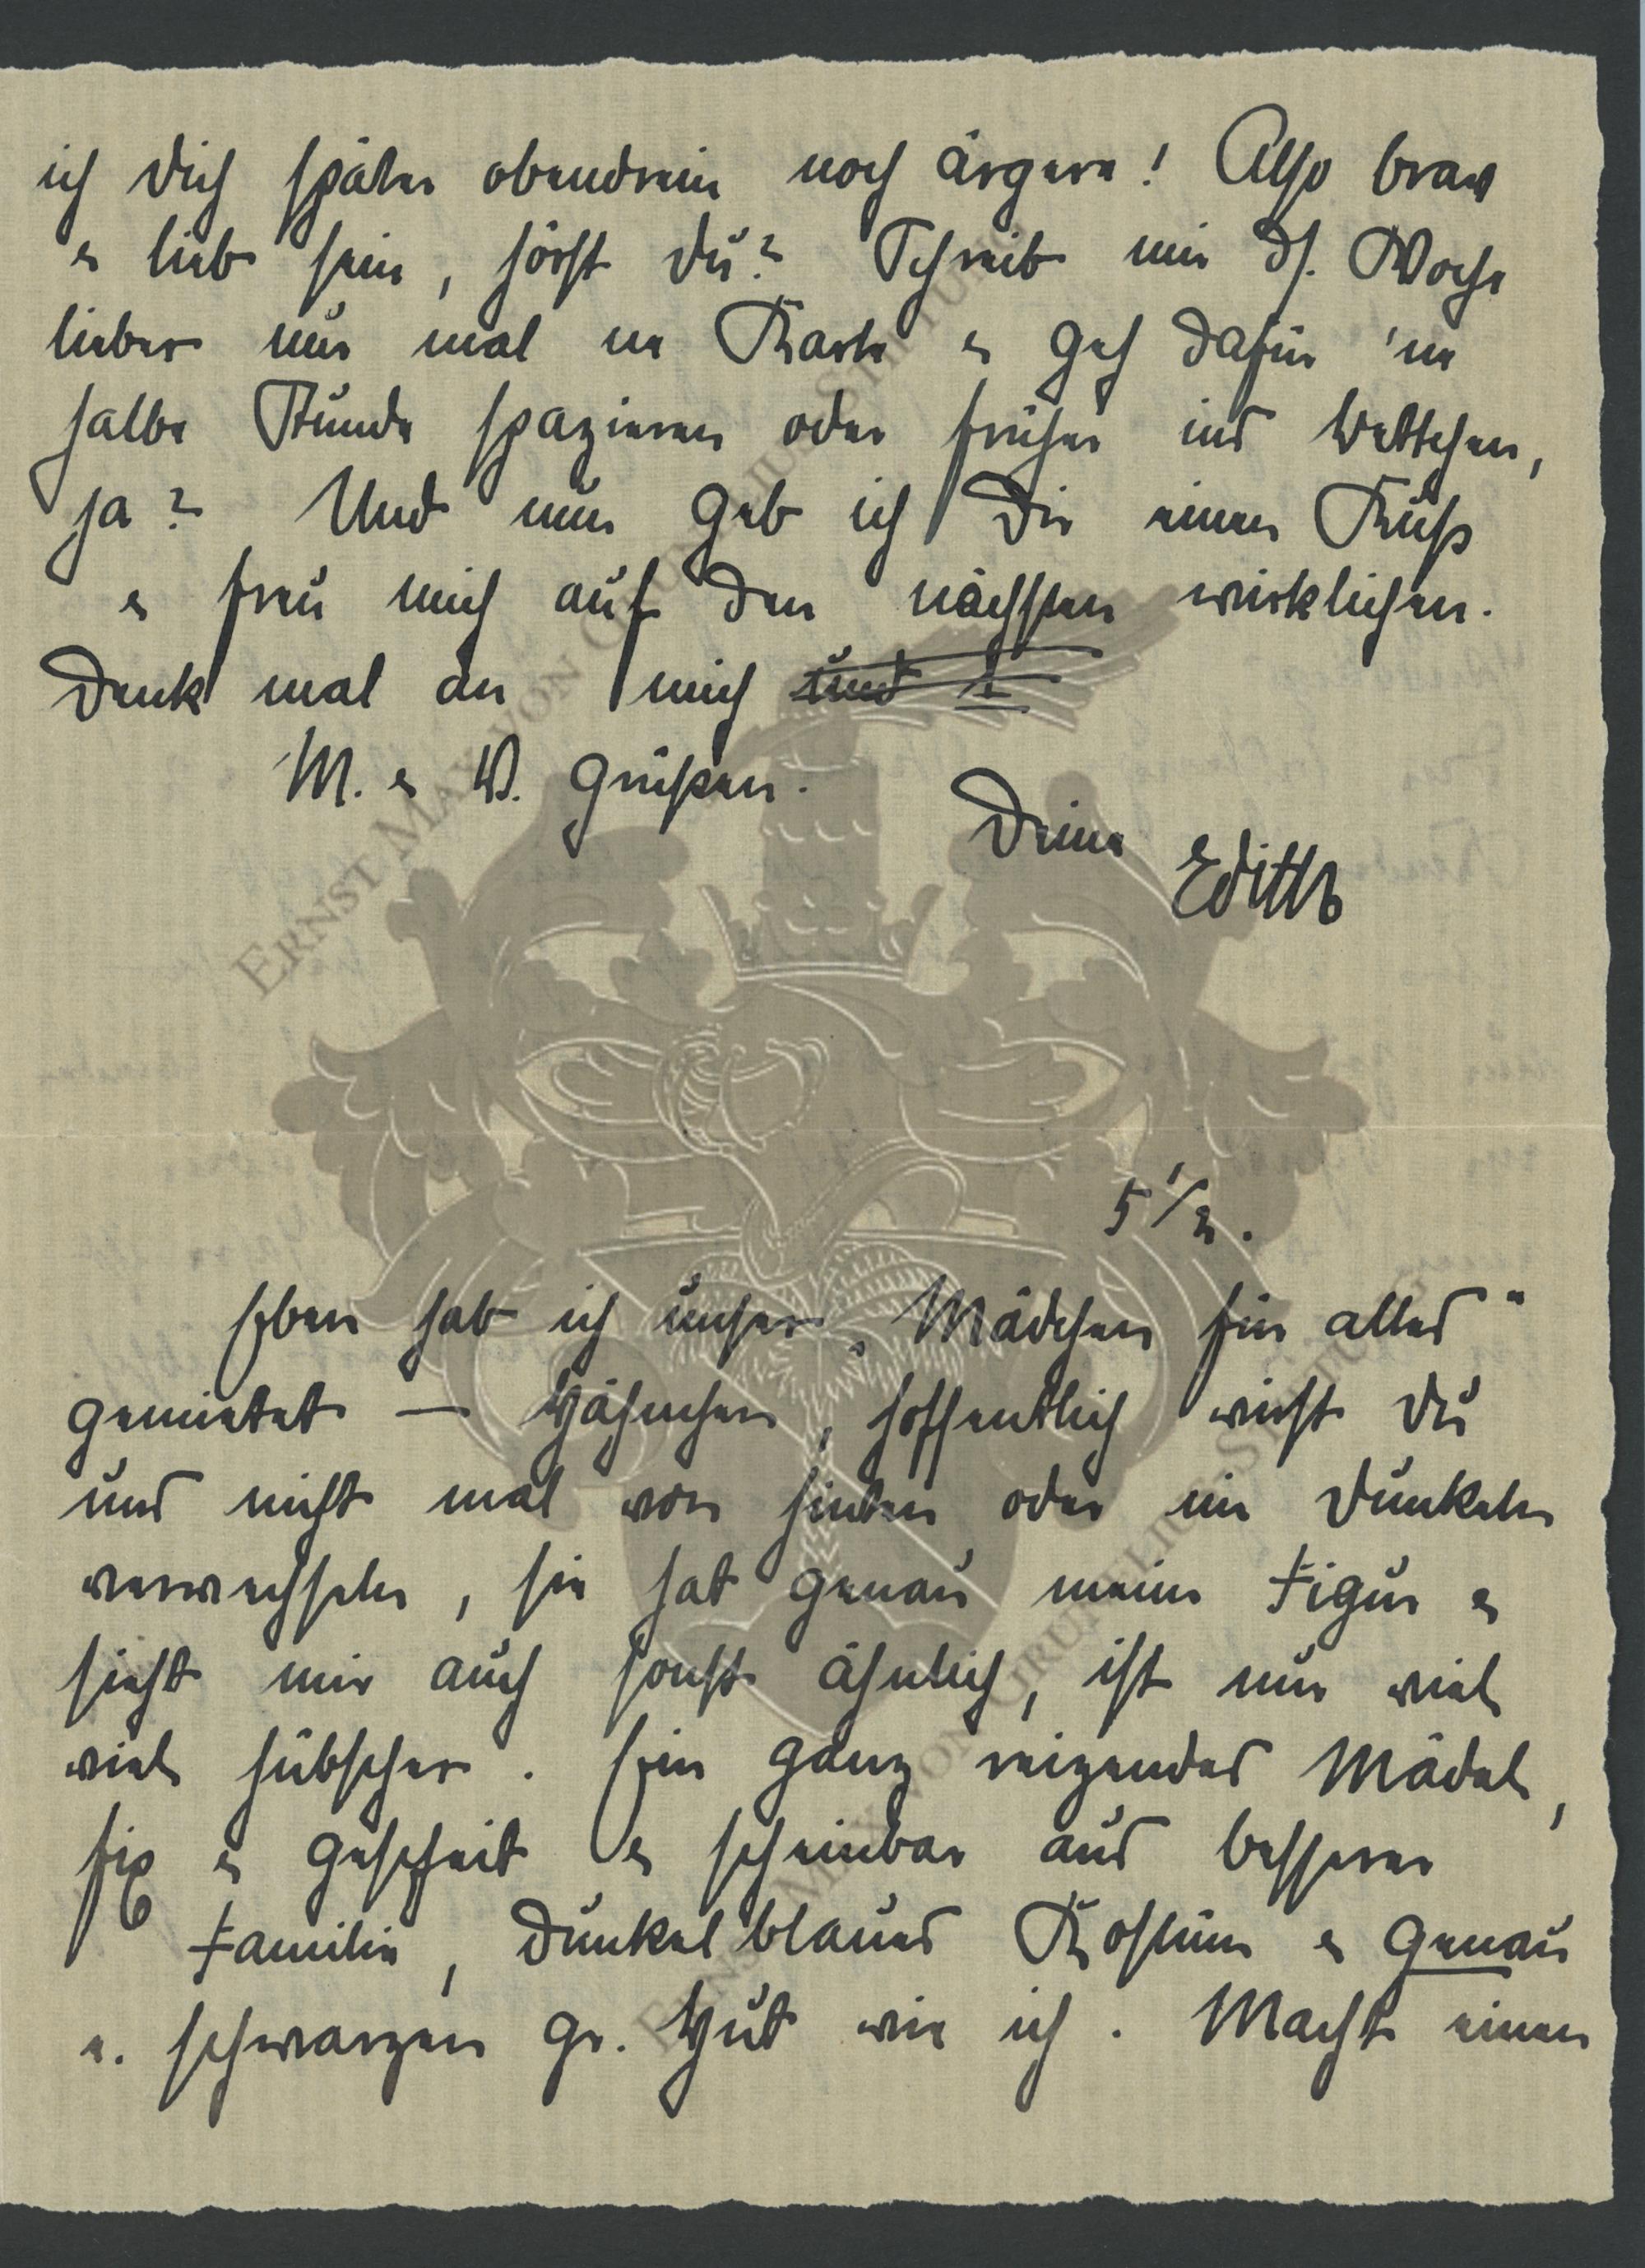 ich dich später obendrein noch ärgere! Also brav
& lieb sein, hörst du? Schreib mir ds. Woche
lieber nur mal ne Karte & geh dafür 'ne
halbe Stunde spazieren oder früher ins Bettchen,
ja? Und nun geb ich Dir einen Kuß
& freu mich auf den nächsten wirklichen.
Denk mal an mich und
M. & V. grüßen.
Deine
Edith
5 1/2.
Eben hab ich unser „Mädchen für alles"
gemietet — Hähnchen, hoffentlich wirst du
uns nicht mal von hinten oder im Dunkeln
verwechseln, sie hat genau meine Figur &
sieht mir auch sonst ähnlich, ist nur viel
viel hübscher. Ein ganz reizendes Mädel,
fix & gescheit & scheinbar aus besserer
Familie, dunkelblaues Kostüm & genau
e. schwarzen gr. Hut wie ich. Macht einen
ERNST MAX VON GRUNELIUS-STIFTUNG
ERNST MAX VON GRUNELIUS-STIFTUNG